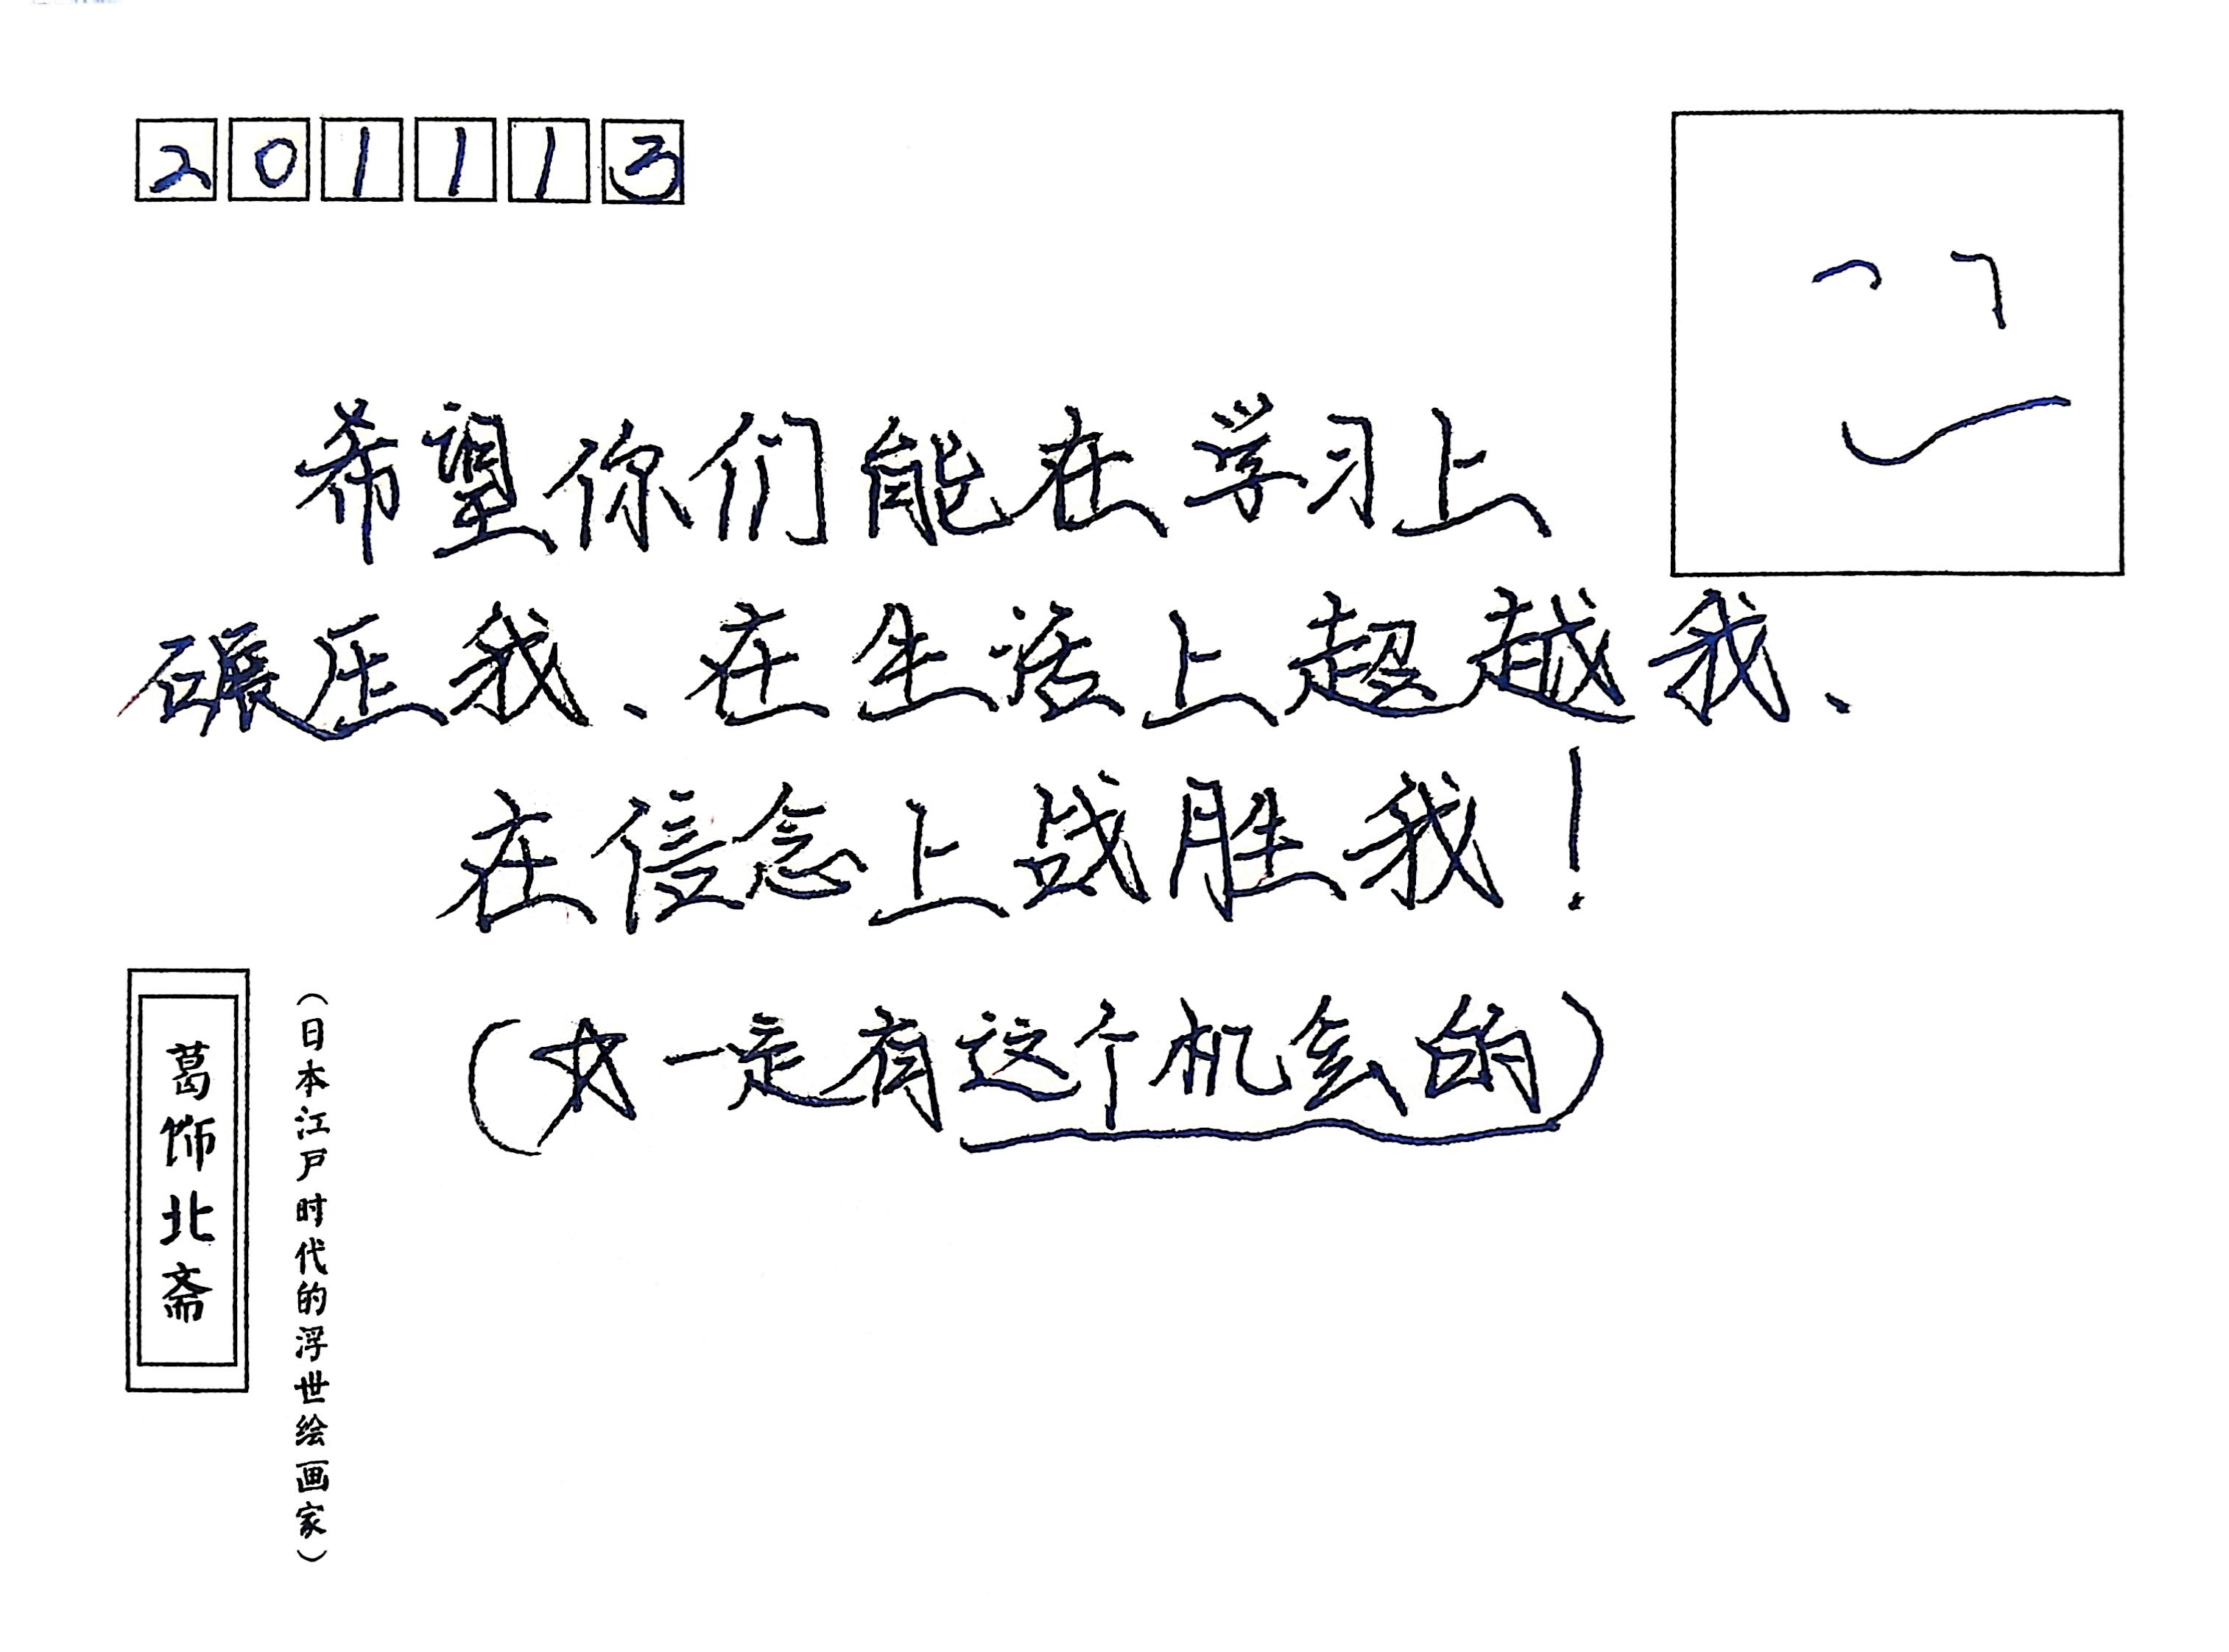 201113
希望你们能在学习上
碾压我、在生活上超越我、
在信念上战胜我！
（☆一定有这个机会的）
葛饰北斋
（日本江户时代的浮世绘画家）